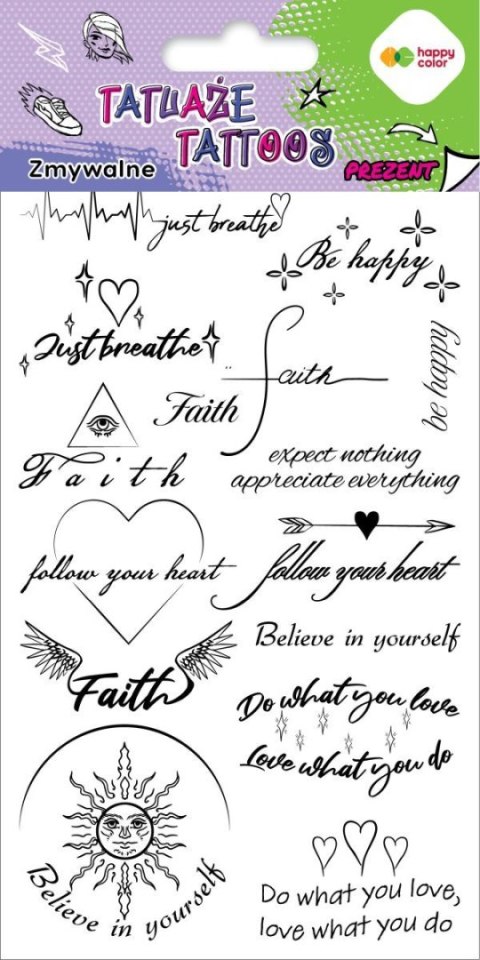 happy
color
TATUAŻE
TATTOOS
Zmywalne
PREZENT
just breathe
Be happy
Just breathe
be happy
Faith
Faith
Faith
expect nothing
appreciate everything
follow your heart
follow your heart
Believe in yourself
Faith
Do what you love
Love what you do
Believe in yourself
Do what you love,
love what you do